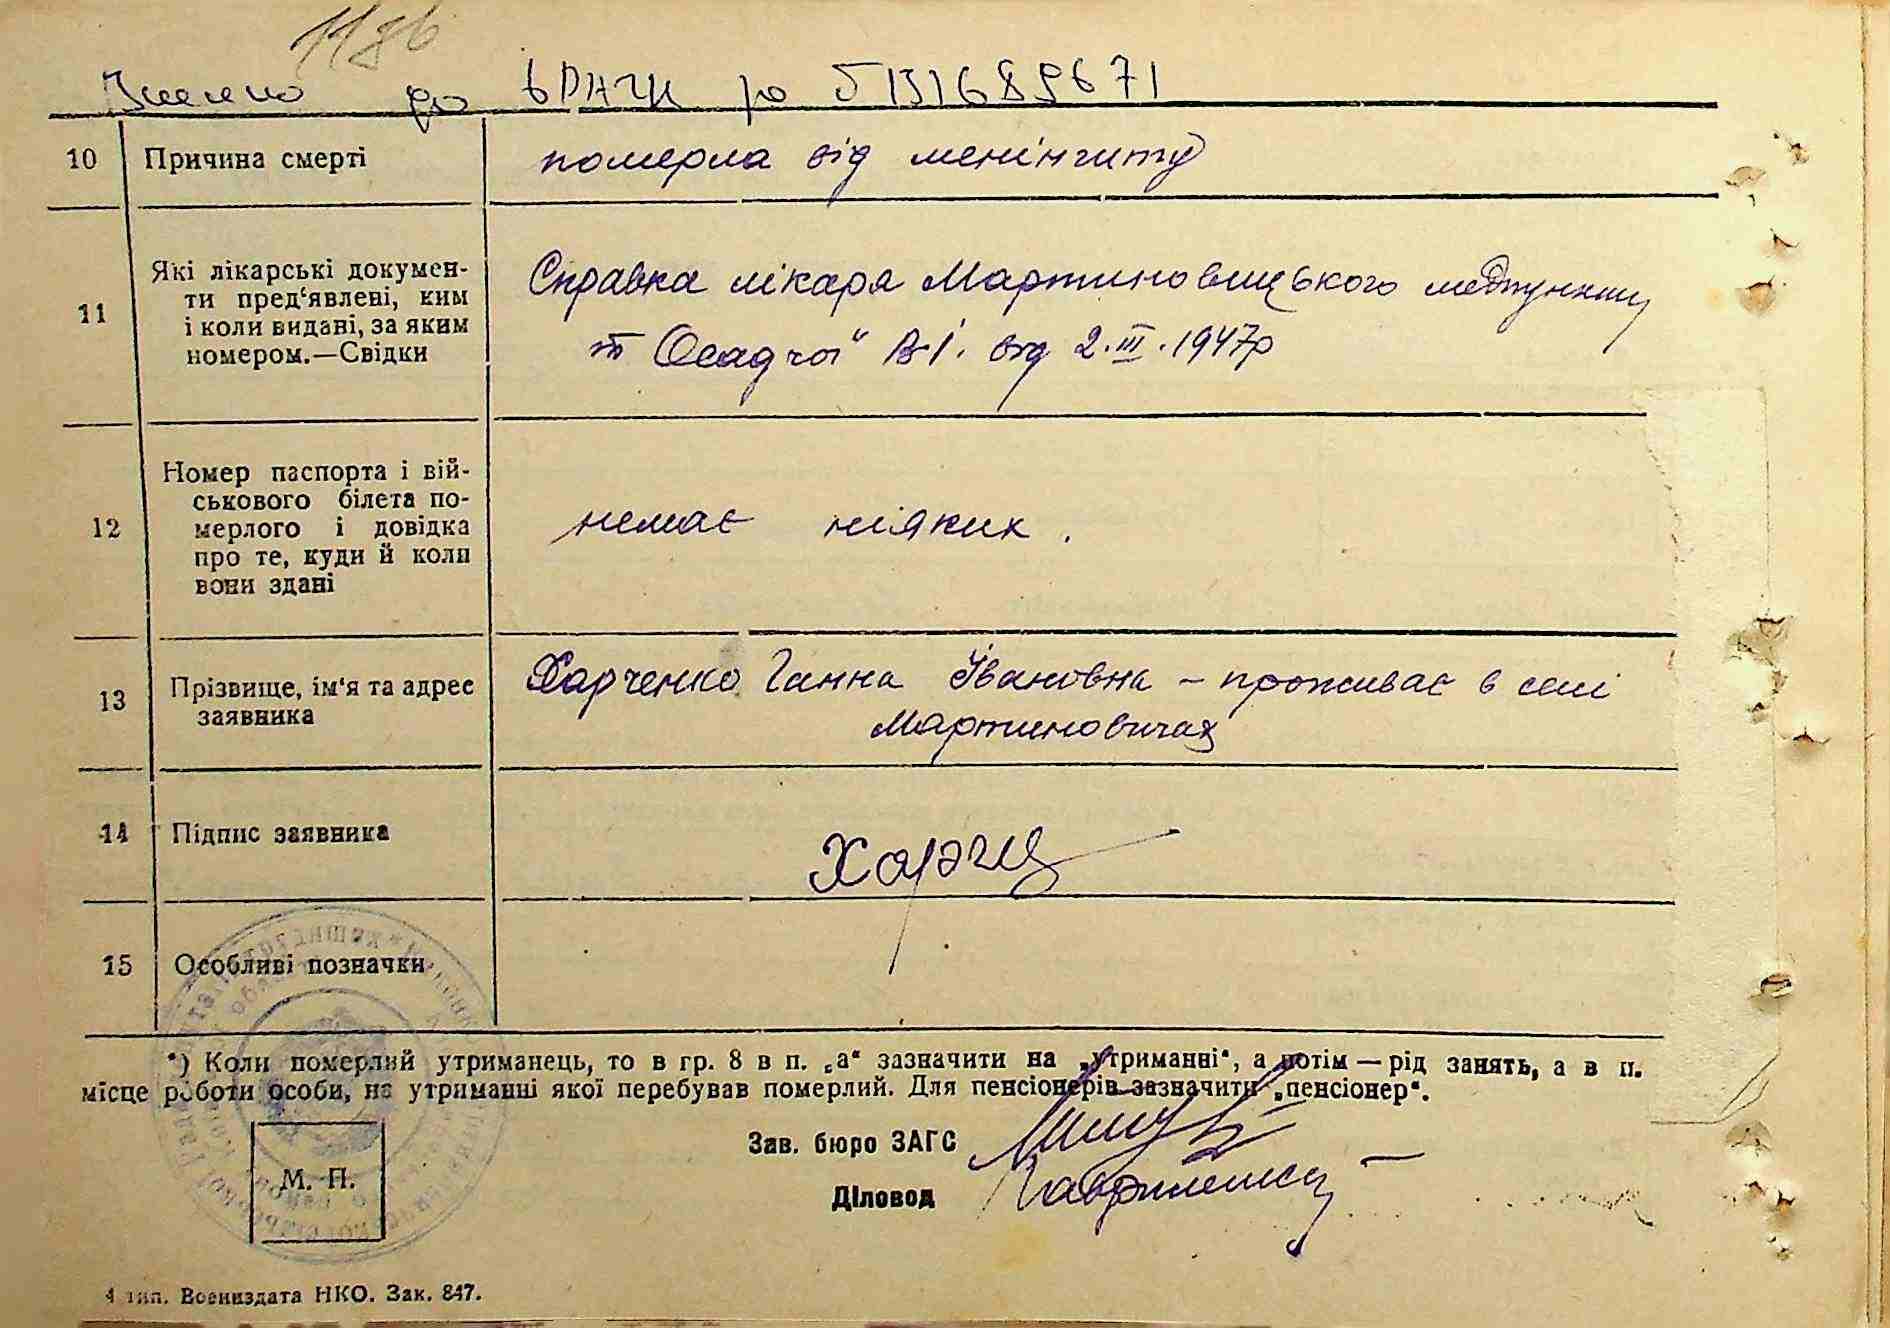 118б
до
10 Причина смерті померла від менінгиту
11 Які лікарські докумен-
ти пред'явлені, ким
і коли видані, за яким
номером.—Свідки
Справка лікаря Мартиновицького медпункту
т Осадчої В.І. від 2.III.1947р
12 Номер паспорта і вій-
ськового білета по-
мерлого і довідка
про те, куди й коли
вони здані
немає ніяких.
13 Прізвище, ім'я та адрес
заявника
Харченко Ганна Івановна – проживає в селі
Мартиновичах
14 Підпис заявника
15 Особливі позначки
*) Коли померлий утриманець, то в гр. 8 в п. „а“ зазначити на „утриманні“, а потім — рід занять, а в п.
місце роботи особи, на утриманні якої перебував померлий. Для пенсіонерів зазначити „пенсіонер“.
Зав. бюро ЗАГС
Діловод
М. П.
4 тип. Воениздата НКО. Зак. 847.